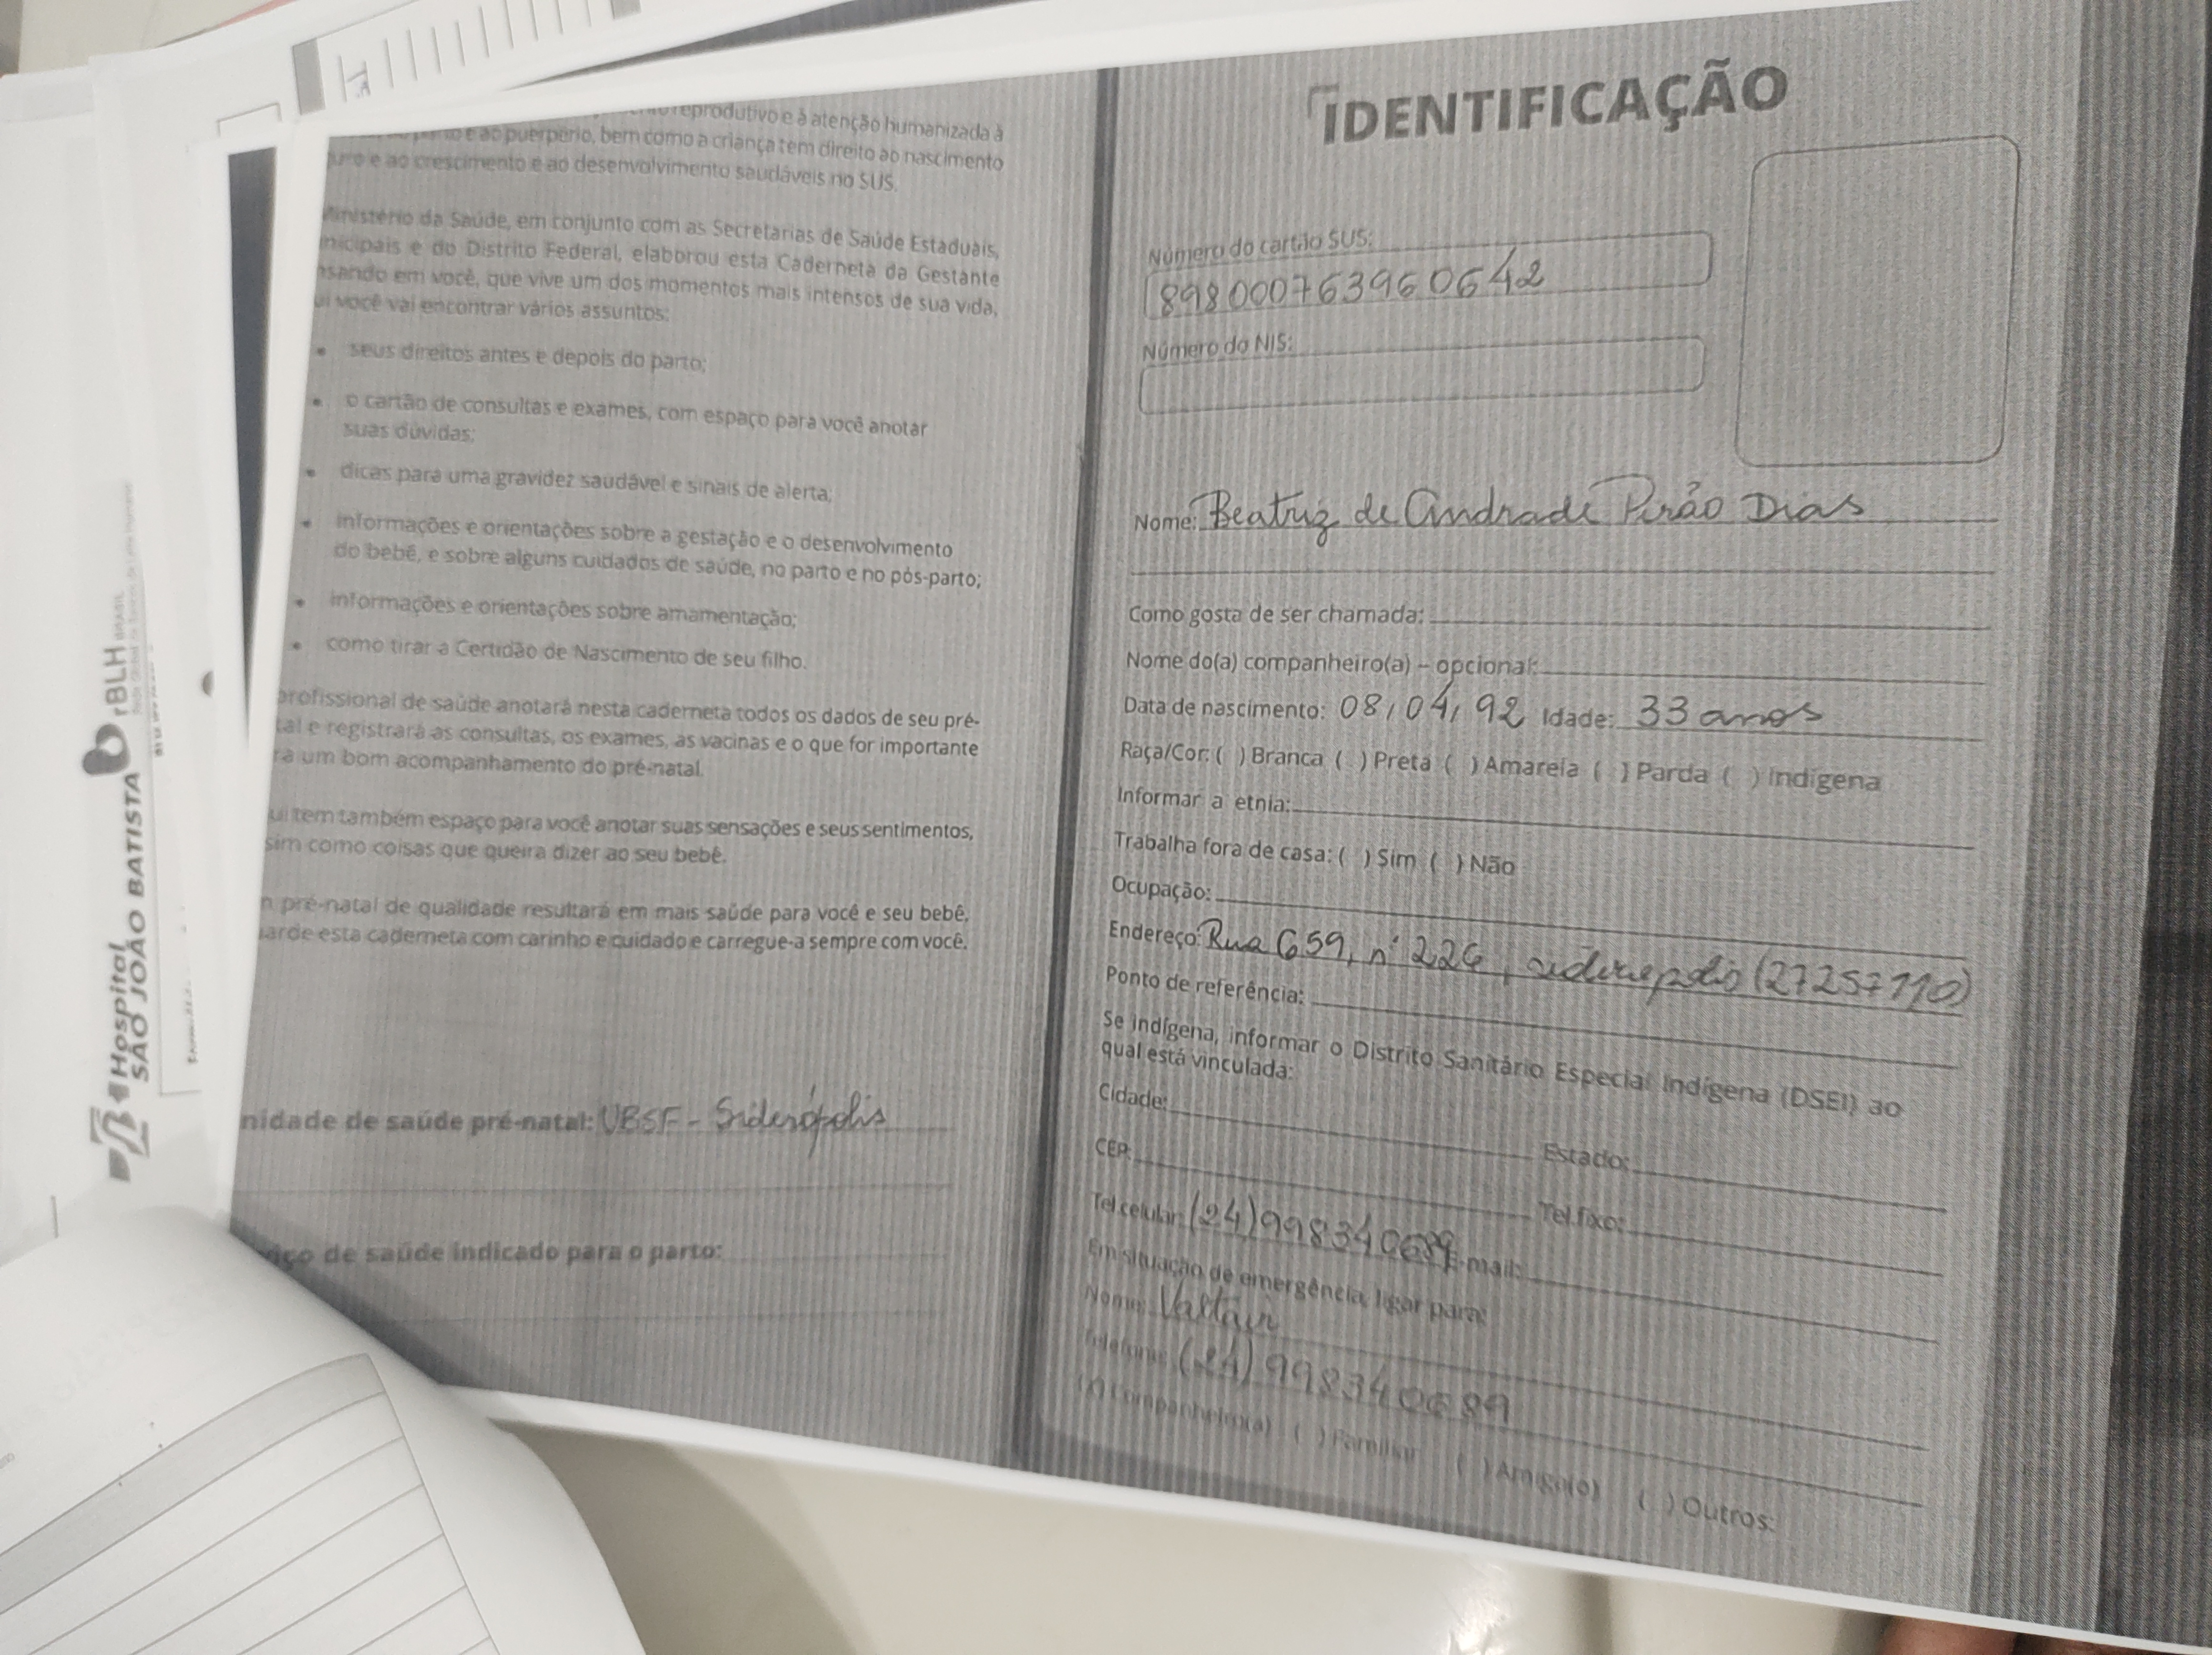 reprodutivo e à atenção humanizada à
e ao puerpério, bem como a criança tem direito ao nascimento
e ao crescimento e ao desenvolvimento saudáveis no SUS.
Ministério da Saúde, em conjunto com as Secretarias de Saúde Estaduais,
nicipais e do Distrito Federal, elaborou esta Caderneta da Gestante
nsando em você, que vive um dos momentos mais intensos de sua vida.
ui você vai encontrar vários assuntos:
• seus direitos antes e depois do parto;
• o cartão de consultas e exames, com espaço para você anotar
suas dúvidas;
• dicas para uma gravidez saudável e sinais de alerta;
• informações e orientações sobre a gestação e o desenvolvimento
do bebê, e sobre alguns cuidados de saúde, no parto e no pós-parto;
• informações e orientações sobre amamentação;
• como tirar a Certidão de Nascimento de seu filho.
profissional de saúde anotará nesta caderneta todos os dados de seu pré-
tal e registrará as consultas, os exames, as vacinas e o que for importante
ra um bom acompanhamento do pré-natal.
ui tem também espaço para você anotar suas sensações e seus sentimentos,
sim como coisas que queira dizer ao seu bebê.
m pré-natal de qualidade resultará em mais saúde para você e seu bebê.
uarde esta caderneta com carinho e cuidado e carregue-a sempre com você.
nidade de saúde pré-natal: UBSF - Siderópolis
iço de saúde indicado para o parto:
IDENTIFICAÇÃO
Número do cartão SUS:
898000763960642
Número do NIS:
Nome: Beatriz de Andrade Pirão Dias
Como gosta de ser chamada:
Nome do(a) companheiro(a) – opcional:
Data de nascimento: 08/04/92 Idade: 33 anos
Raça/Cor: ( ) Branca ( ) Preta ( ) Amarela ( ) Parda ( ) Indígena
Informar a etnia:
Trabalha fora de casa: ( ) Sim ( ) Não
Ocupação:
Endereço: Rua 659, nº 226, siderópolis (27257110)
Ponto de referência:
Se indígena, informar o Distrito Sanitário Especial Indígena (DSEI) ao
qual está vinculada:
Cidade: Estado:
CEP: Tel. fixo:
Tel. celular: (24) 998340689 E-mail:
Em situação de emergência, ligar para:
Nome: Valtair
Telefone: (24) 998340689
(X) Companheiro(a) ( ) Familiar ( ) Amigo(a) ( ) Outros:
Hospital
SÃO JOÃO BATISTA
rBLH BRASIL